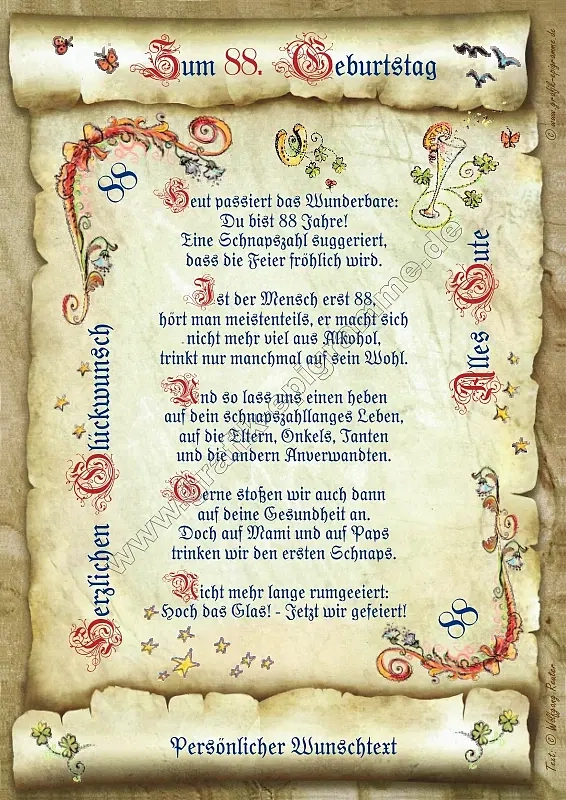 Zum 88. Geburtstag
© www.grafik-epigramme.de
88
Heut passiert das Wunderbare:
Du bist 88 Jahre!
Eine Schnapszahl suggeriert,
dass die Feier fröhlich wird.
Ist der Mensch erst 88,
hört man meistenteils, er macht sich
nicht mehr viel aus Alkohol,
trinkt nur manchmal auf sein Wohl.
Und so lass uns einen heben
auf dein schnapszahllanges Leben,
auf die Eltern, Onkels, Tanten
und die andern Anverwandten.
Gerne stoßen wir auch dann
auf deine Gesundheit an.
Doch auf Mami und auf Paps
trinken wir den ersten Schnaps.
Nicht mehr lange rumgeeiert:
Hoch das Glas! - Jetzt wir gefeiert!
Herzlichen Glückwunsch
Alles Gute
88
www.grafik-epigramme.de
Text: © Wolfgang Reuter
Persönlicher Wunschtext